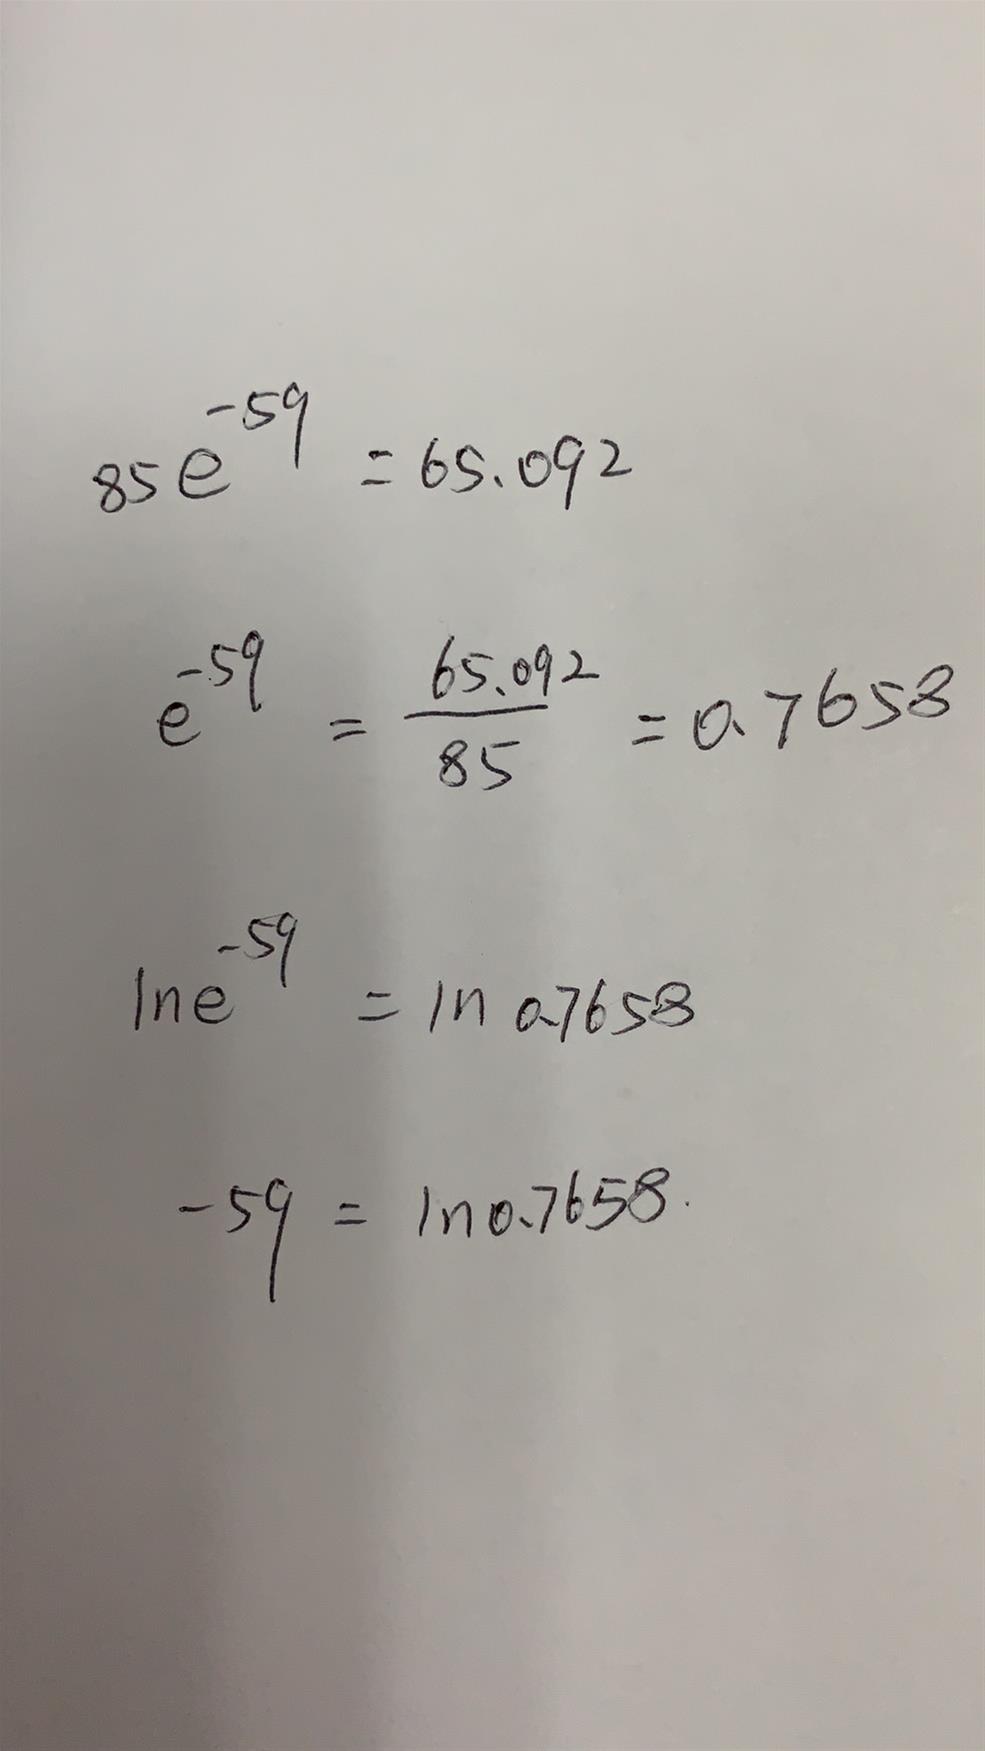 85e^-59 = 65.092
e^-59 = 65.092/85 = 0.7658
lne^-59 = ln 0.7658
-59 = ln0.7658.